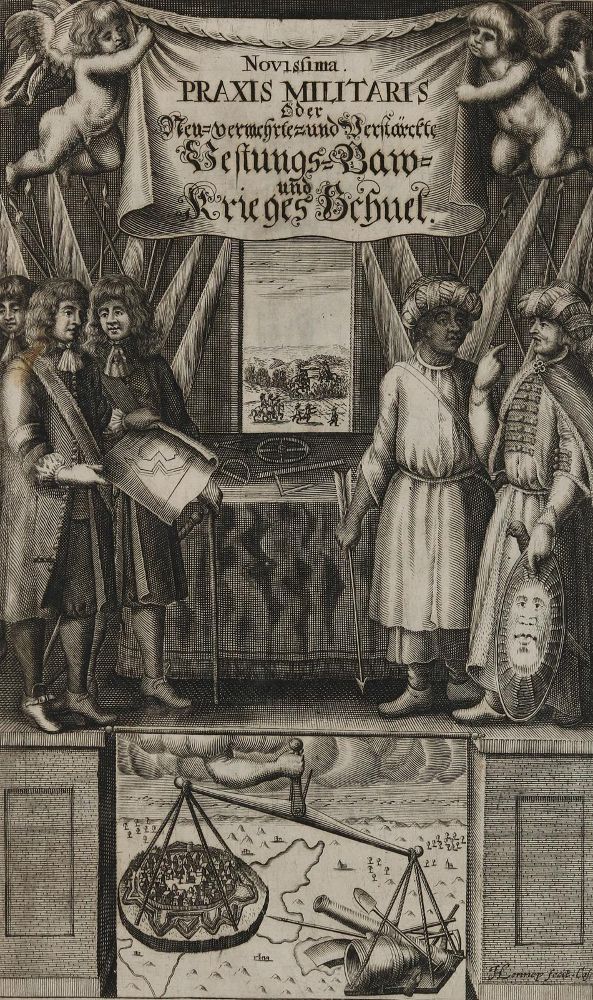 Novissima.
PRAXIS MILITARIS
Oder
Neu-vermehrte-und Verstärckte
Vestungs-Baw-
und
Krieges Schuel.
fecit